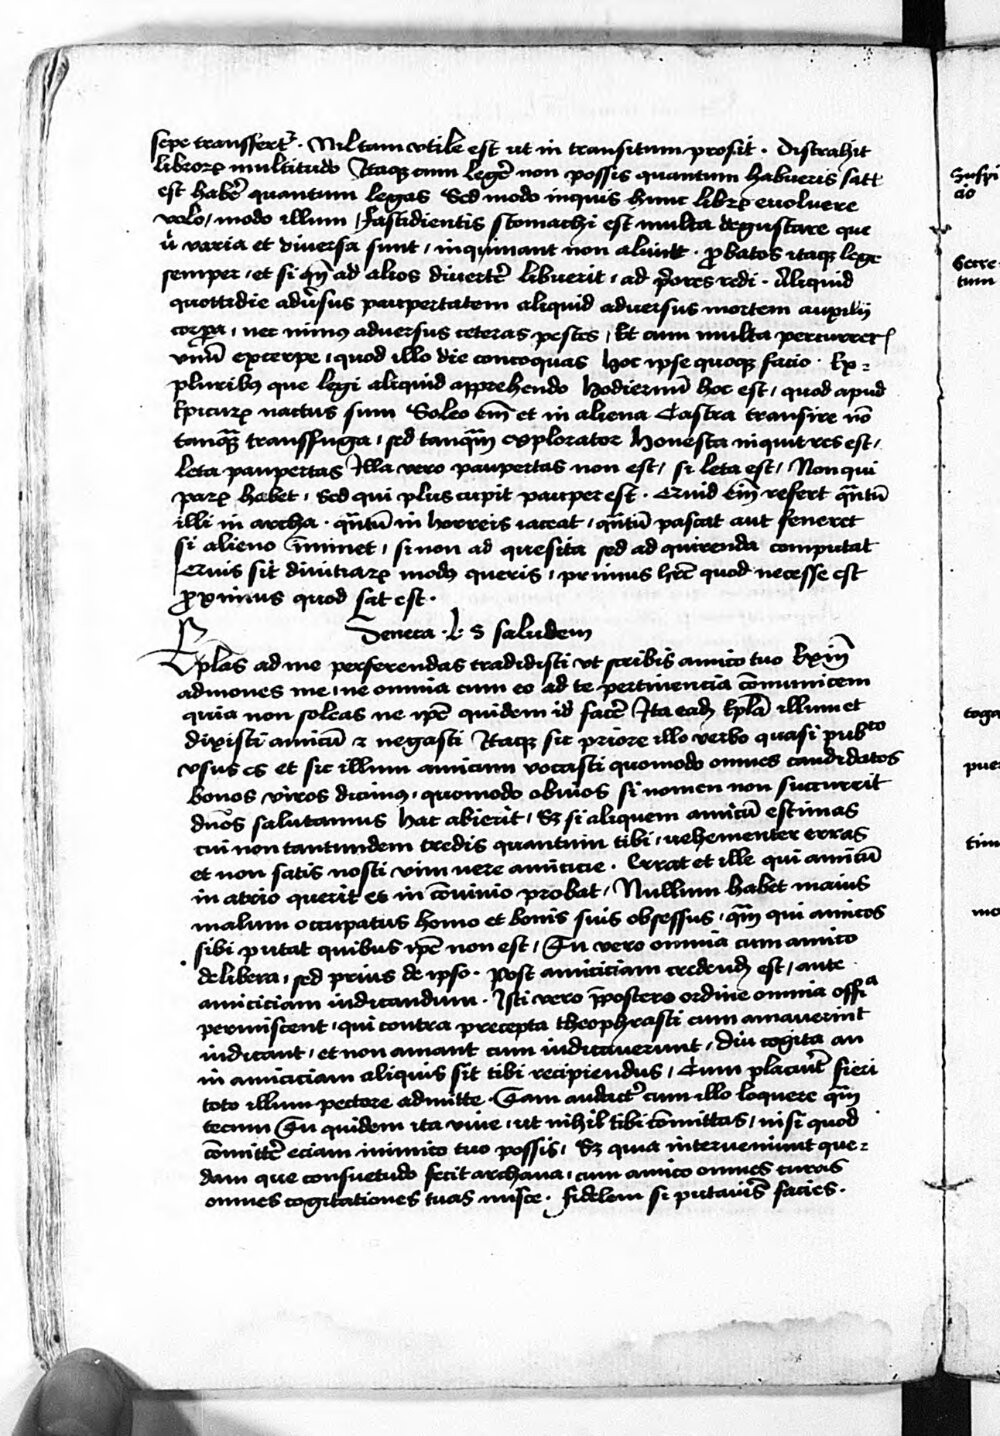 sepe transfert᷑ . Nil tam vtile est ut in transitum prosit . Distrahit
libroꝝ multitudo Itaqꝫ cum legẽ non possis quantum habueris satt
est habẽ quantum legas Sed modo inquis hunc libꝝ euoluere
volo / modo illum / fastidientis stomachi est multa degustare que
ũ varia et diuersa sunt / inquinant non alunt . ꝓbatos itaqꝫ lege
semper / et si qñ ad alios diuertẽ libuerit / ad p̃ores redi . Aliquid
quottidie adũsus paupertatem aliquid aduersus mortem auxilij
/ nec minus aduersus ceteras pestes / Et cum multa percurrer
vnũ excerpe / quod illo die concoquas Hoc ipse quoqꝫ facio . Ex =
pluribus que legi aliquid apprehendo Hodiernũ hoc est / quod apud
Epicurꝝ nactus sum Soleo eñ et in aliena Castra transire nõ
tanqꝫ̃ transfuga / sed tanqꝫ̃ explorator Honesta inquit res est /
leta paupertas Illa vero paupertas non est / si leta est / Non qui
parꝝ habet / Sed qui plus cupit pauper est . Quid eñ refert qñtũ
illi in archa . qñtũ in horreis iaceat / qñtũ pascat aut feneret
si alieno ĩminet / si non ad quesita sed ad quirenda computat
Quis sit diuitiarꝝ modus queris / primus hr̃e quod necesse est
ꝓximus quod sat est .
Seneca . L . S saludem
Ep̃las ad me perferendas tradidisti vt scribis amico tuo Exiñ
admones me / ne omnia cum eo ad te pertinencia cõmunicem
quia non soleas ne ip̃e quidem id facẽ Ita eadꝫ Ep̃la illum et
dixisti amicũ ⁊ negasti Itaqꝫ sic priore illo verbo quasi pubᶜᵒ
vsus es et sic illum amicum vocasti quomodo omnes candidatos
bonos viros dicimus / quomodo obuios si nomen non succurrit
dños salutamus hac abierit / Sꝫ si aliquem amicũ estimas
cui non tantundem credis quantum tibi / vehementer erras
et non satis nosti vim vere amicicie . Errat et ille qui amicũ
in atrio querit et in cõuiuio probat / Nullum habet maius
malum occupatus homo et bonis suis obsessus / qꝫ̃ qui amicos
sibi putat quibus ip̃e non est / Tu vero omnia cum amico
delibera / sed prius de ipso . Post amiciciam credendꝫ est / ante
amiciciam iudicandum . Isti vero p̃postero ordine omnia offiᵃ
permiscent / qui contra precepta theophrasti cum amauerint
iudicant / et non amant cum iudicauerunt / Diu cogita an
in amiciciam aliquis sit tibi recipiendus / Cum placuẽt fieri
toto illum pectore admitte . Tam audactẽ cum illo loquere qꝫ̃
tecum Tu quidem ita viue / ut nihil tibi cõmittas / nisi quod
cõmittẽ eciam inimico tuo possis / Sꝫ quia interueniunt que =
dam que consuetudo fecit archana / cum amico omnes curas
omnes cogitationes tuas misce . fidelem si putauĩs facies .
Suspi
cio
Secre
tum
toga
pue
tim
mo